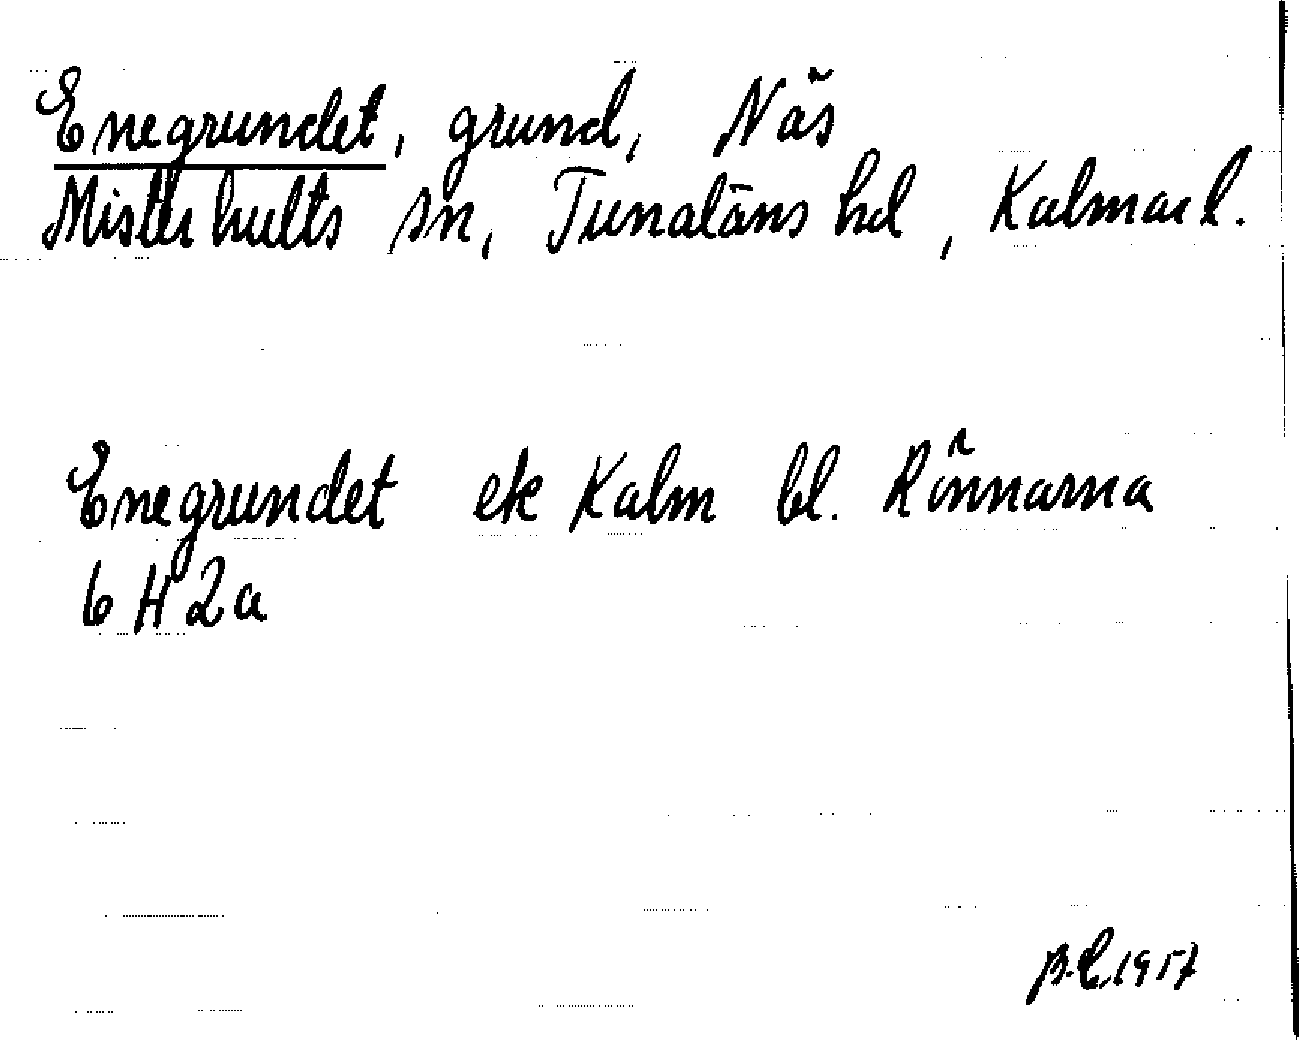 Enegrundet, grund, Näs
Misterhults sn, Tunaläns hd, Kalmar l.
Enegrundet ek Kalm bl. Rönnarna
6 H 2a
1957